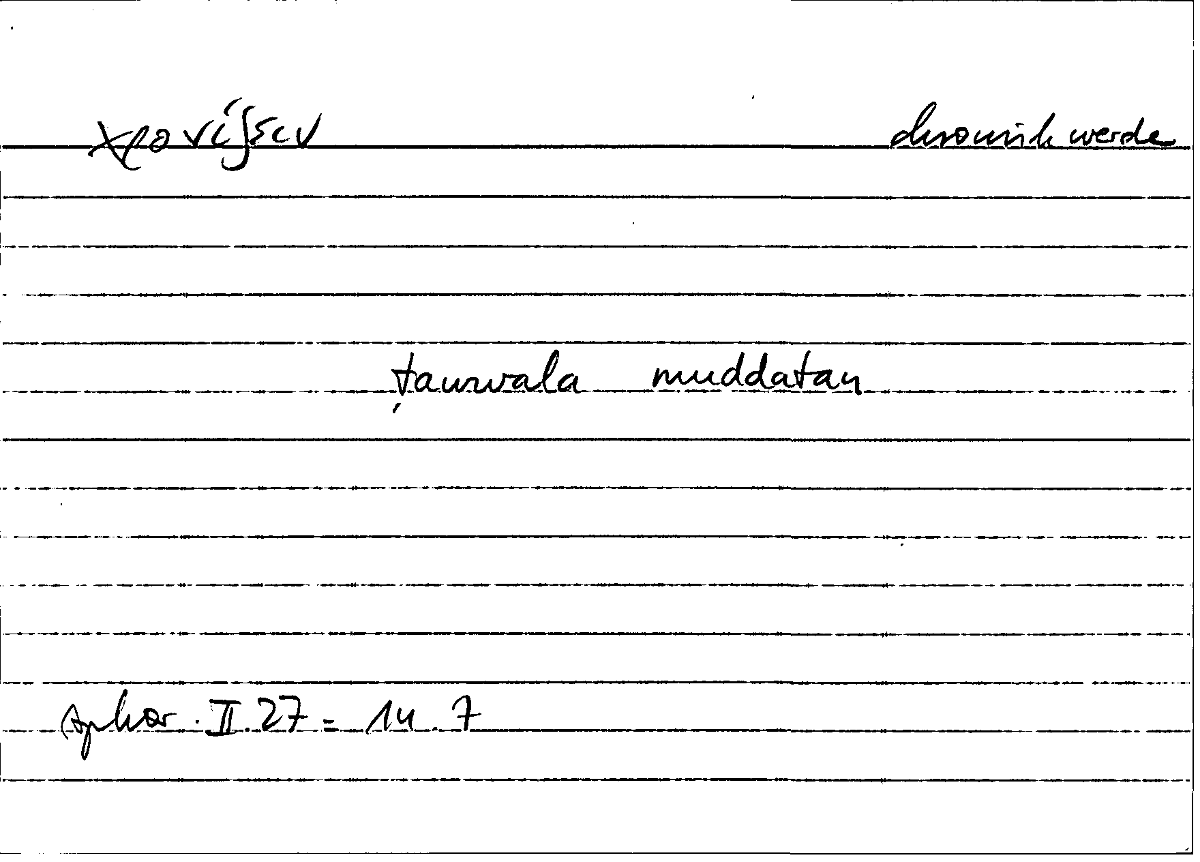 χρονίζειν chronisch werde
ṭauwala muddatan
Aphor. II. 27 = 14. 7